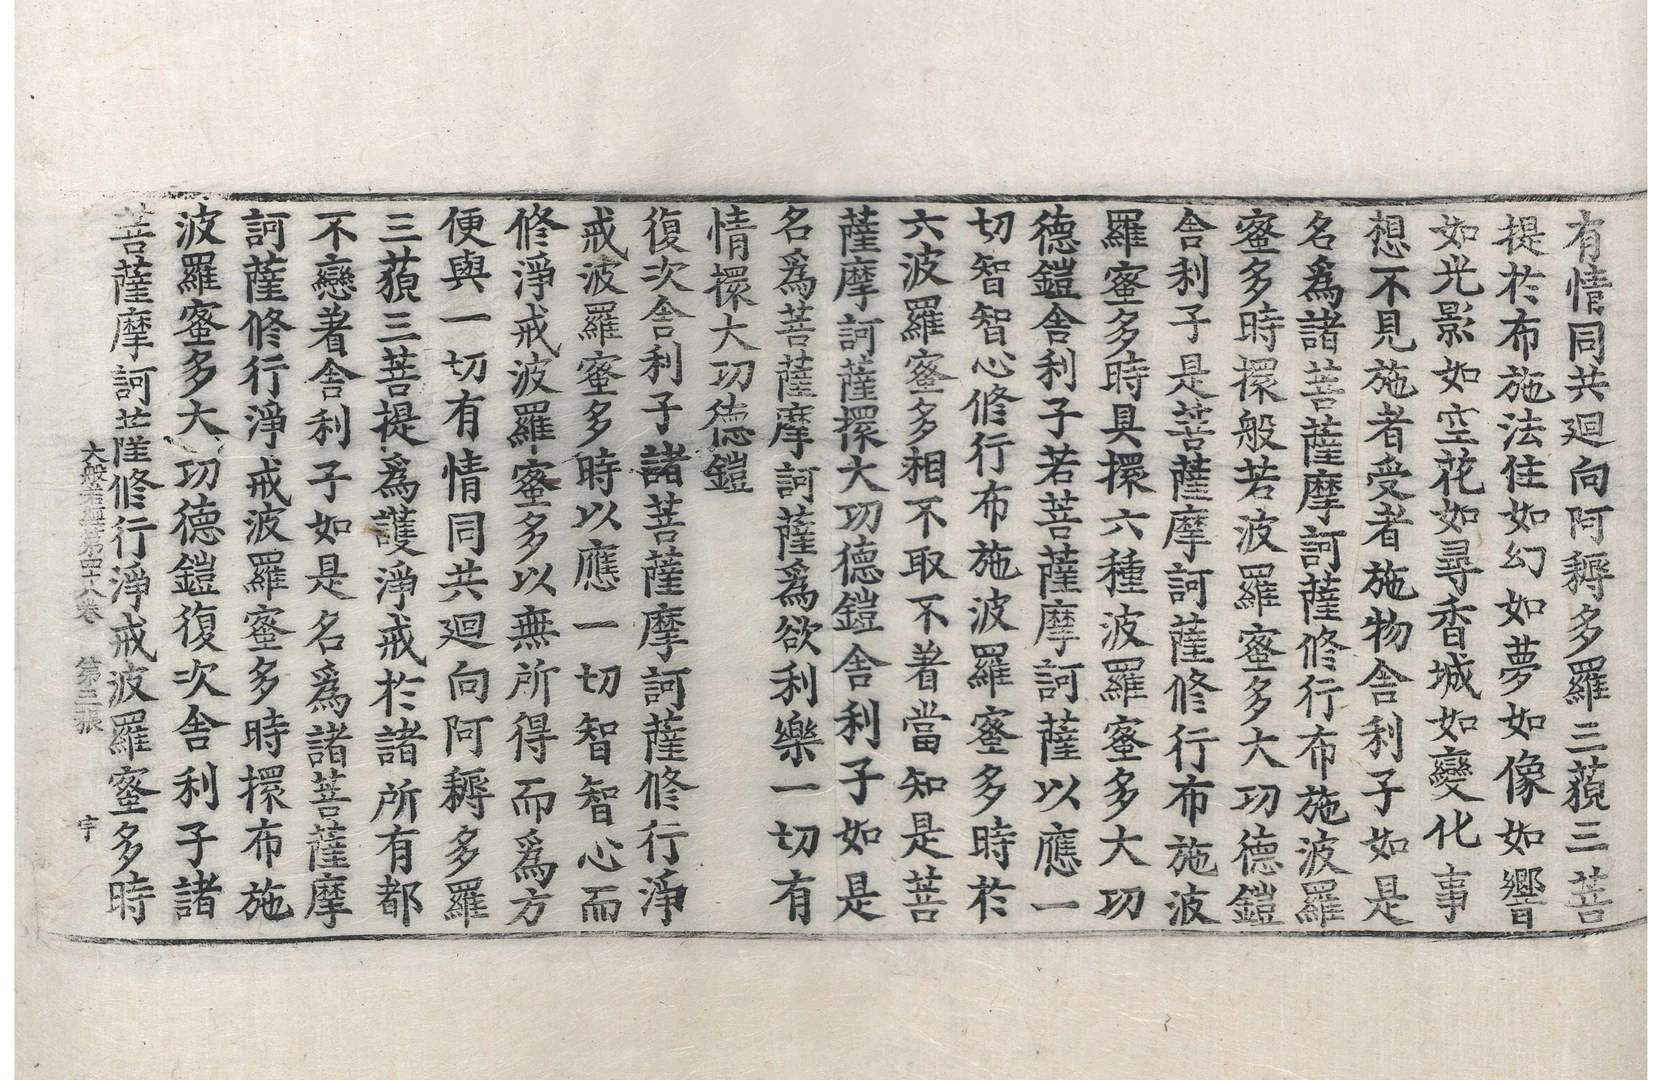 有情同共迴向阿耨多羅三藐三菩
提於布施法住如幻如夢如像如響
如光影如空花如尋香城如變化事
想不見施者受者施物舎利子如是
名爲諸菩薩摩訶薩修行布施波羅
蜜多時擐般若波羅蜜多大功德鎧
舎利子是菩薩摩訶薩修行布施波
羅蜜多時具擐六種波羅蜜多大功
德鎧舎利子若菩薩摩訶薩以應一
切智智心修行布施波羅蜜多時於
六波羅蜜多相不取不著當知是菩
薩摩訶薩擐大功德鎧舎利子如是
名爲菩薩摩訶薩爲欲利樂一切有
情擐大功德鎧
復次舎利子諸菩薩摩訶薩修行淨
戒波羅蜜多時以應一切智智心而
修淨戒波羅蜜多以無所得而爲方
便與一切有情同共迴向阿耨多羅
三藐三菩提爲護淨戒於諸所有都
不戀著舎利子如是名爲諸菩薩摩
訶薩修行淨戒波羅蜜多時擐布施
波羅蜜多大功德鎧復次舎利子諸
菩薩摩訶薩修行淨戒波羅蜜多時
大般若經第四十八卷 第三張 宇